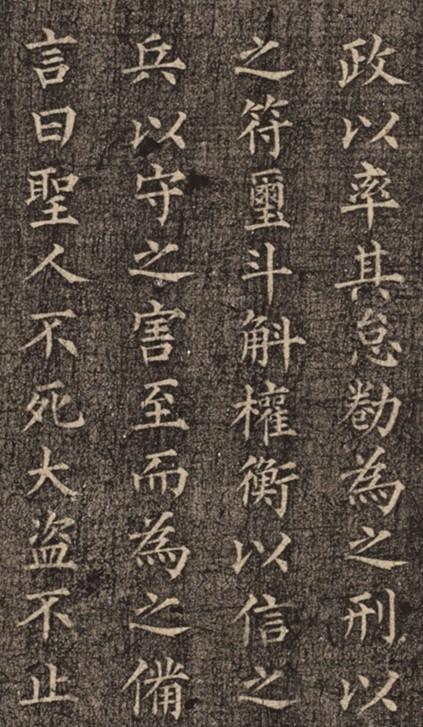 政以率其怠勌為之刑以
之符璽斗斛權衡以信之
兵以守之害至而為之備
言曰聖人不死大盜不止